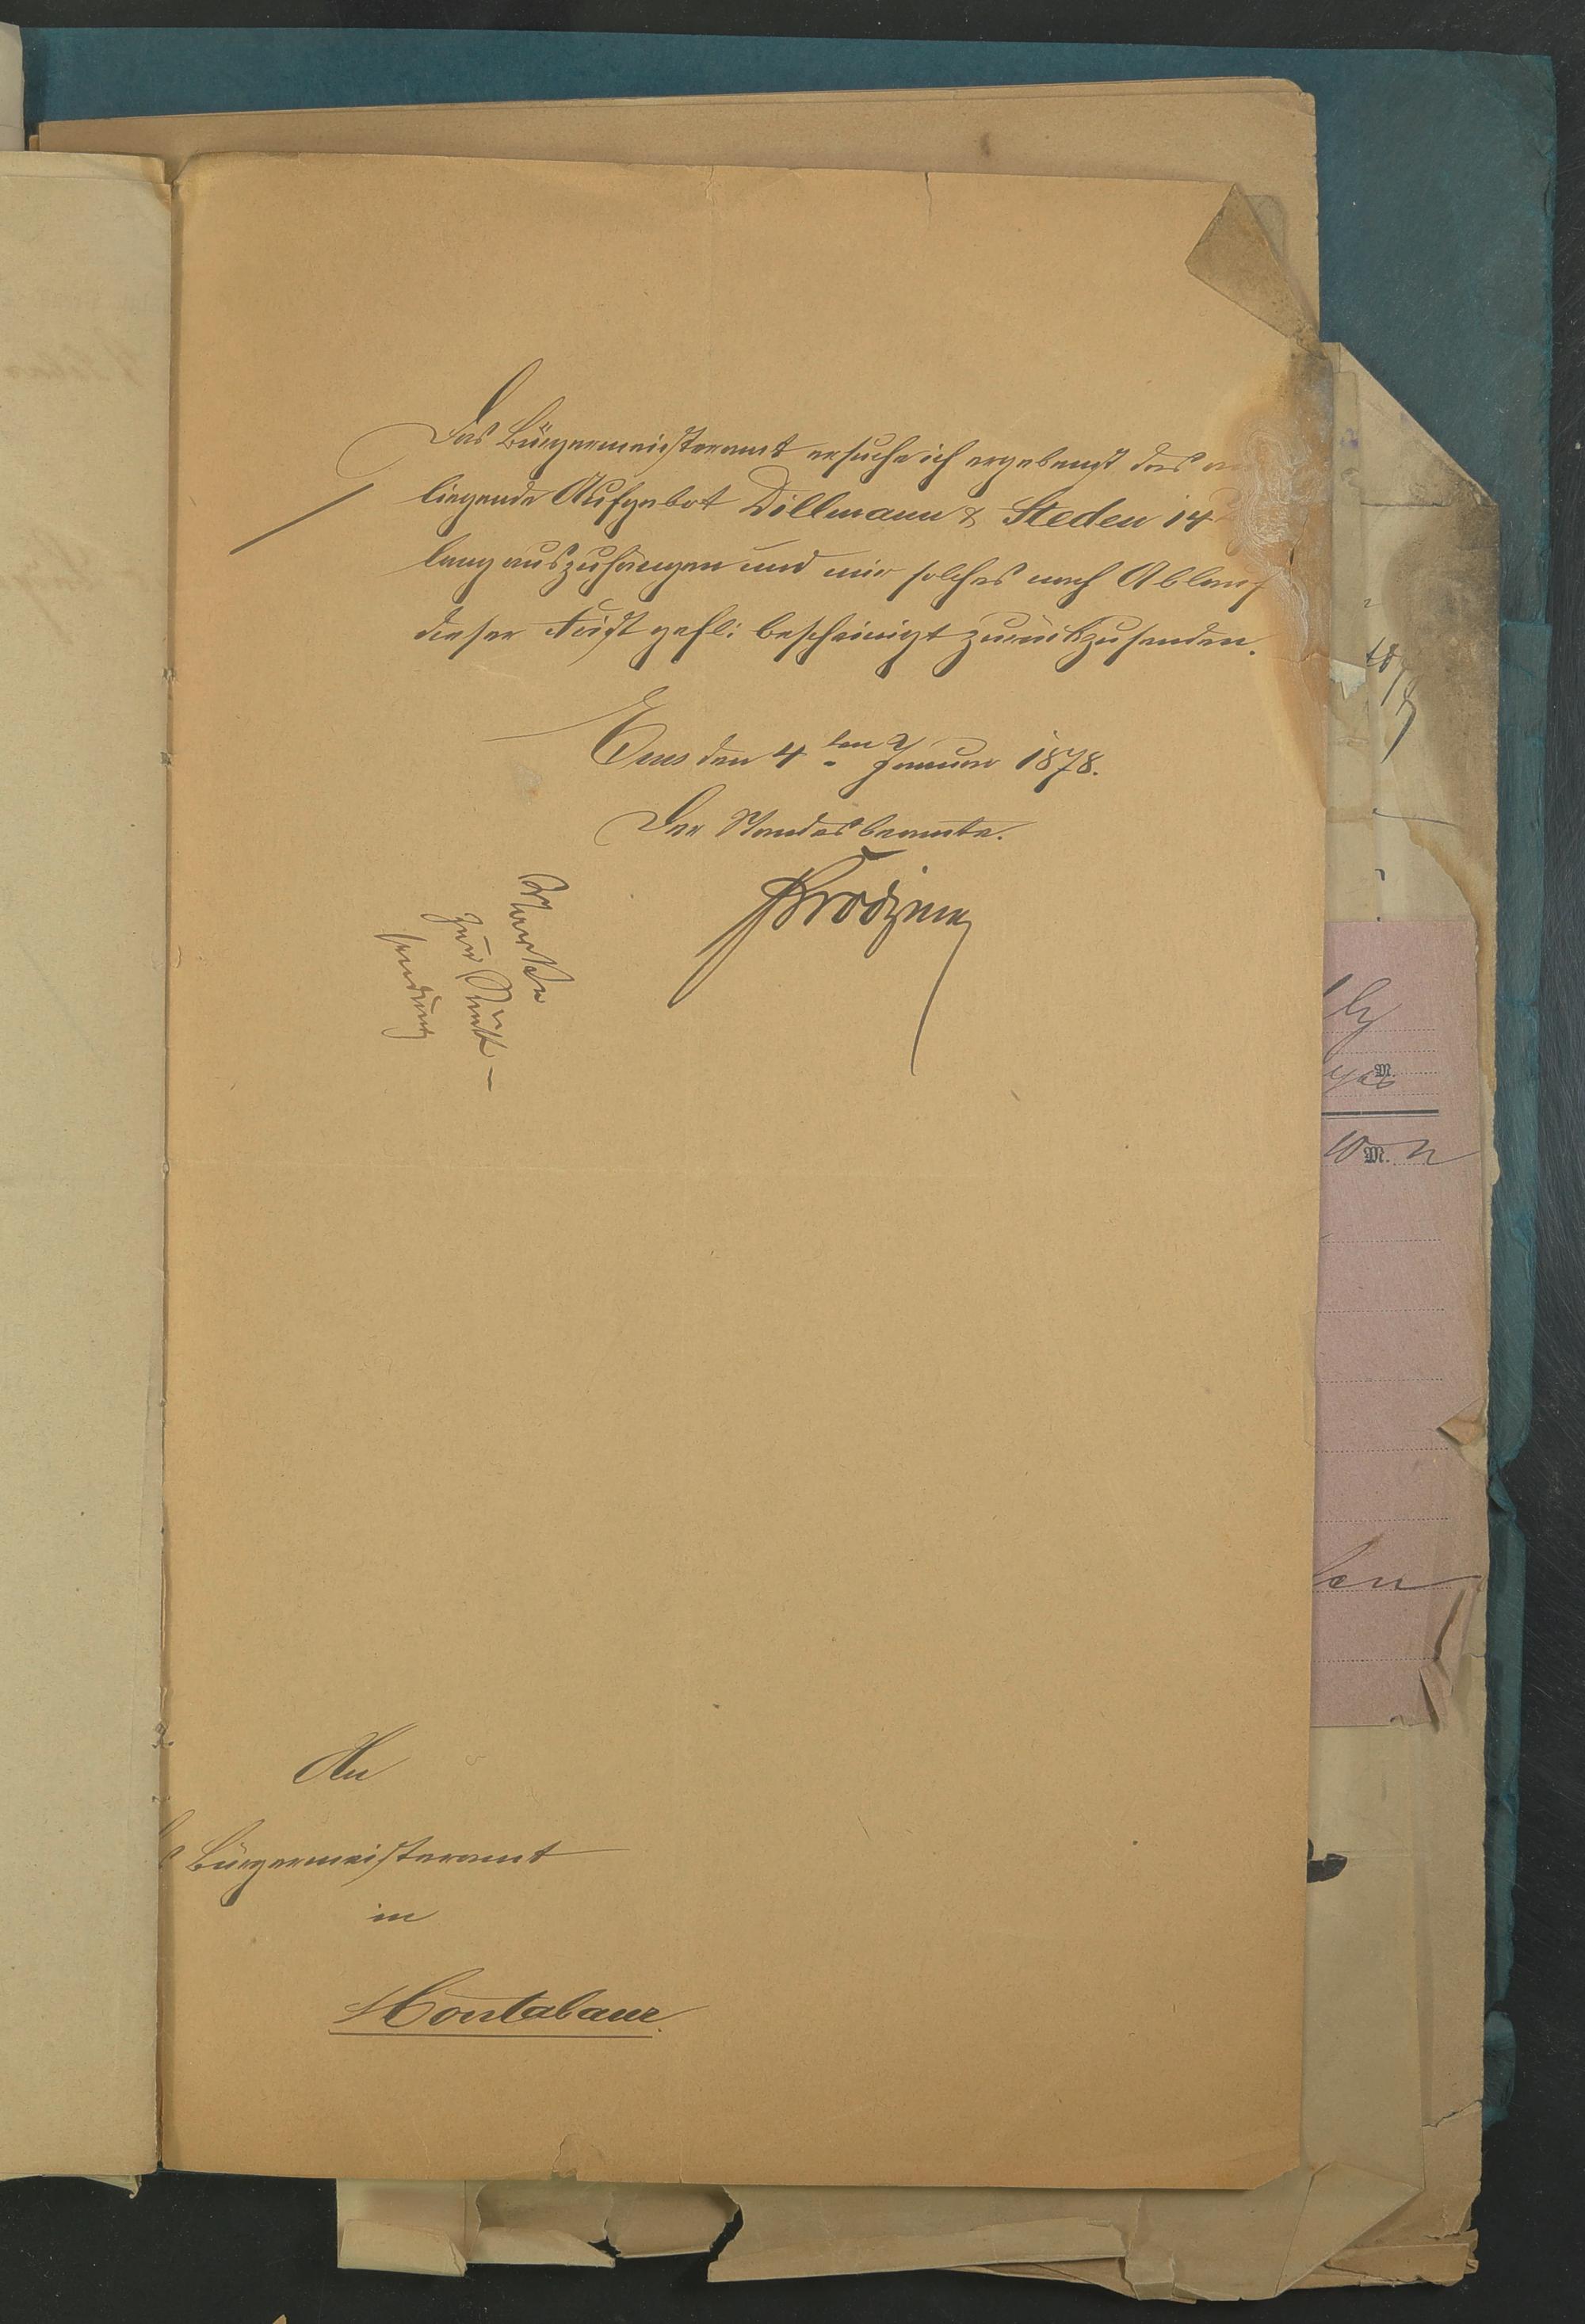 Das Bürgermeisteramt ersuche ich ergebenst das
liegende Aufgebot Dillmann & Steden 14
lang auszuhängen und mir solches nach Ablauf
dieser Frist gefl: bescheinigt zurückzusenden.
Ems den 4ten Januar 1878.
Der Standesbeamte.
Marke
zur Rück-
sendung
An
Bürgermeisteramt
in
Montabaur.